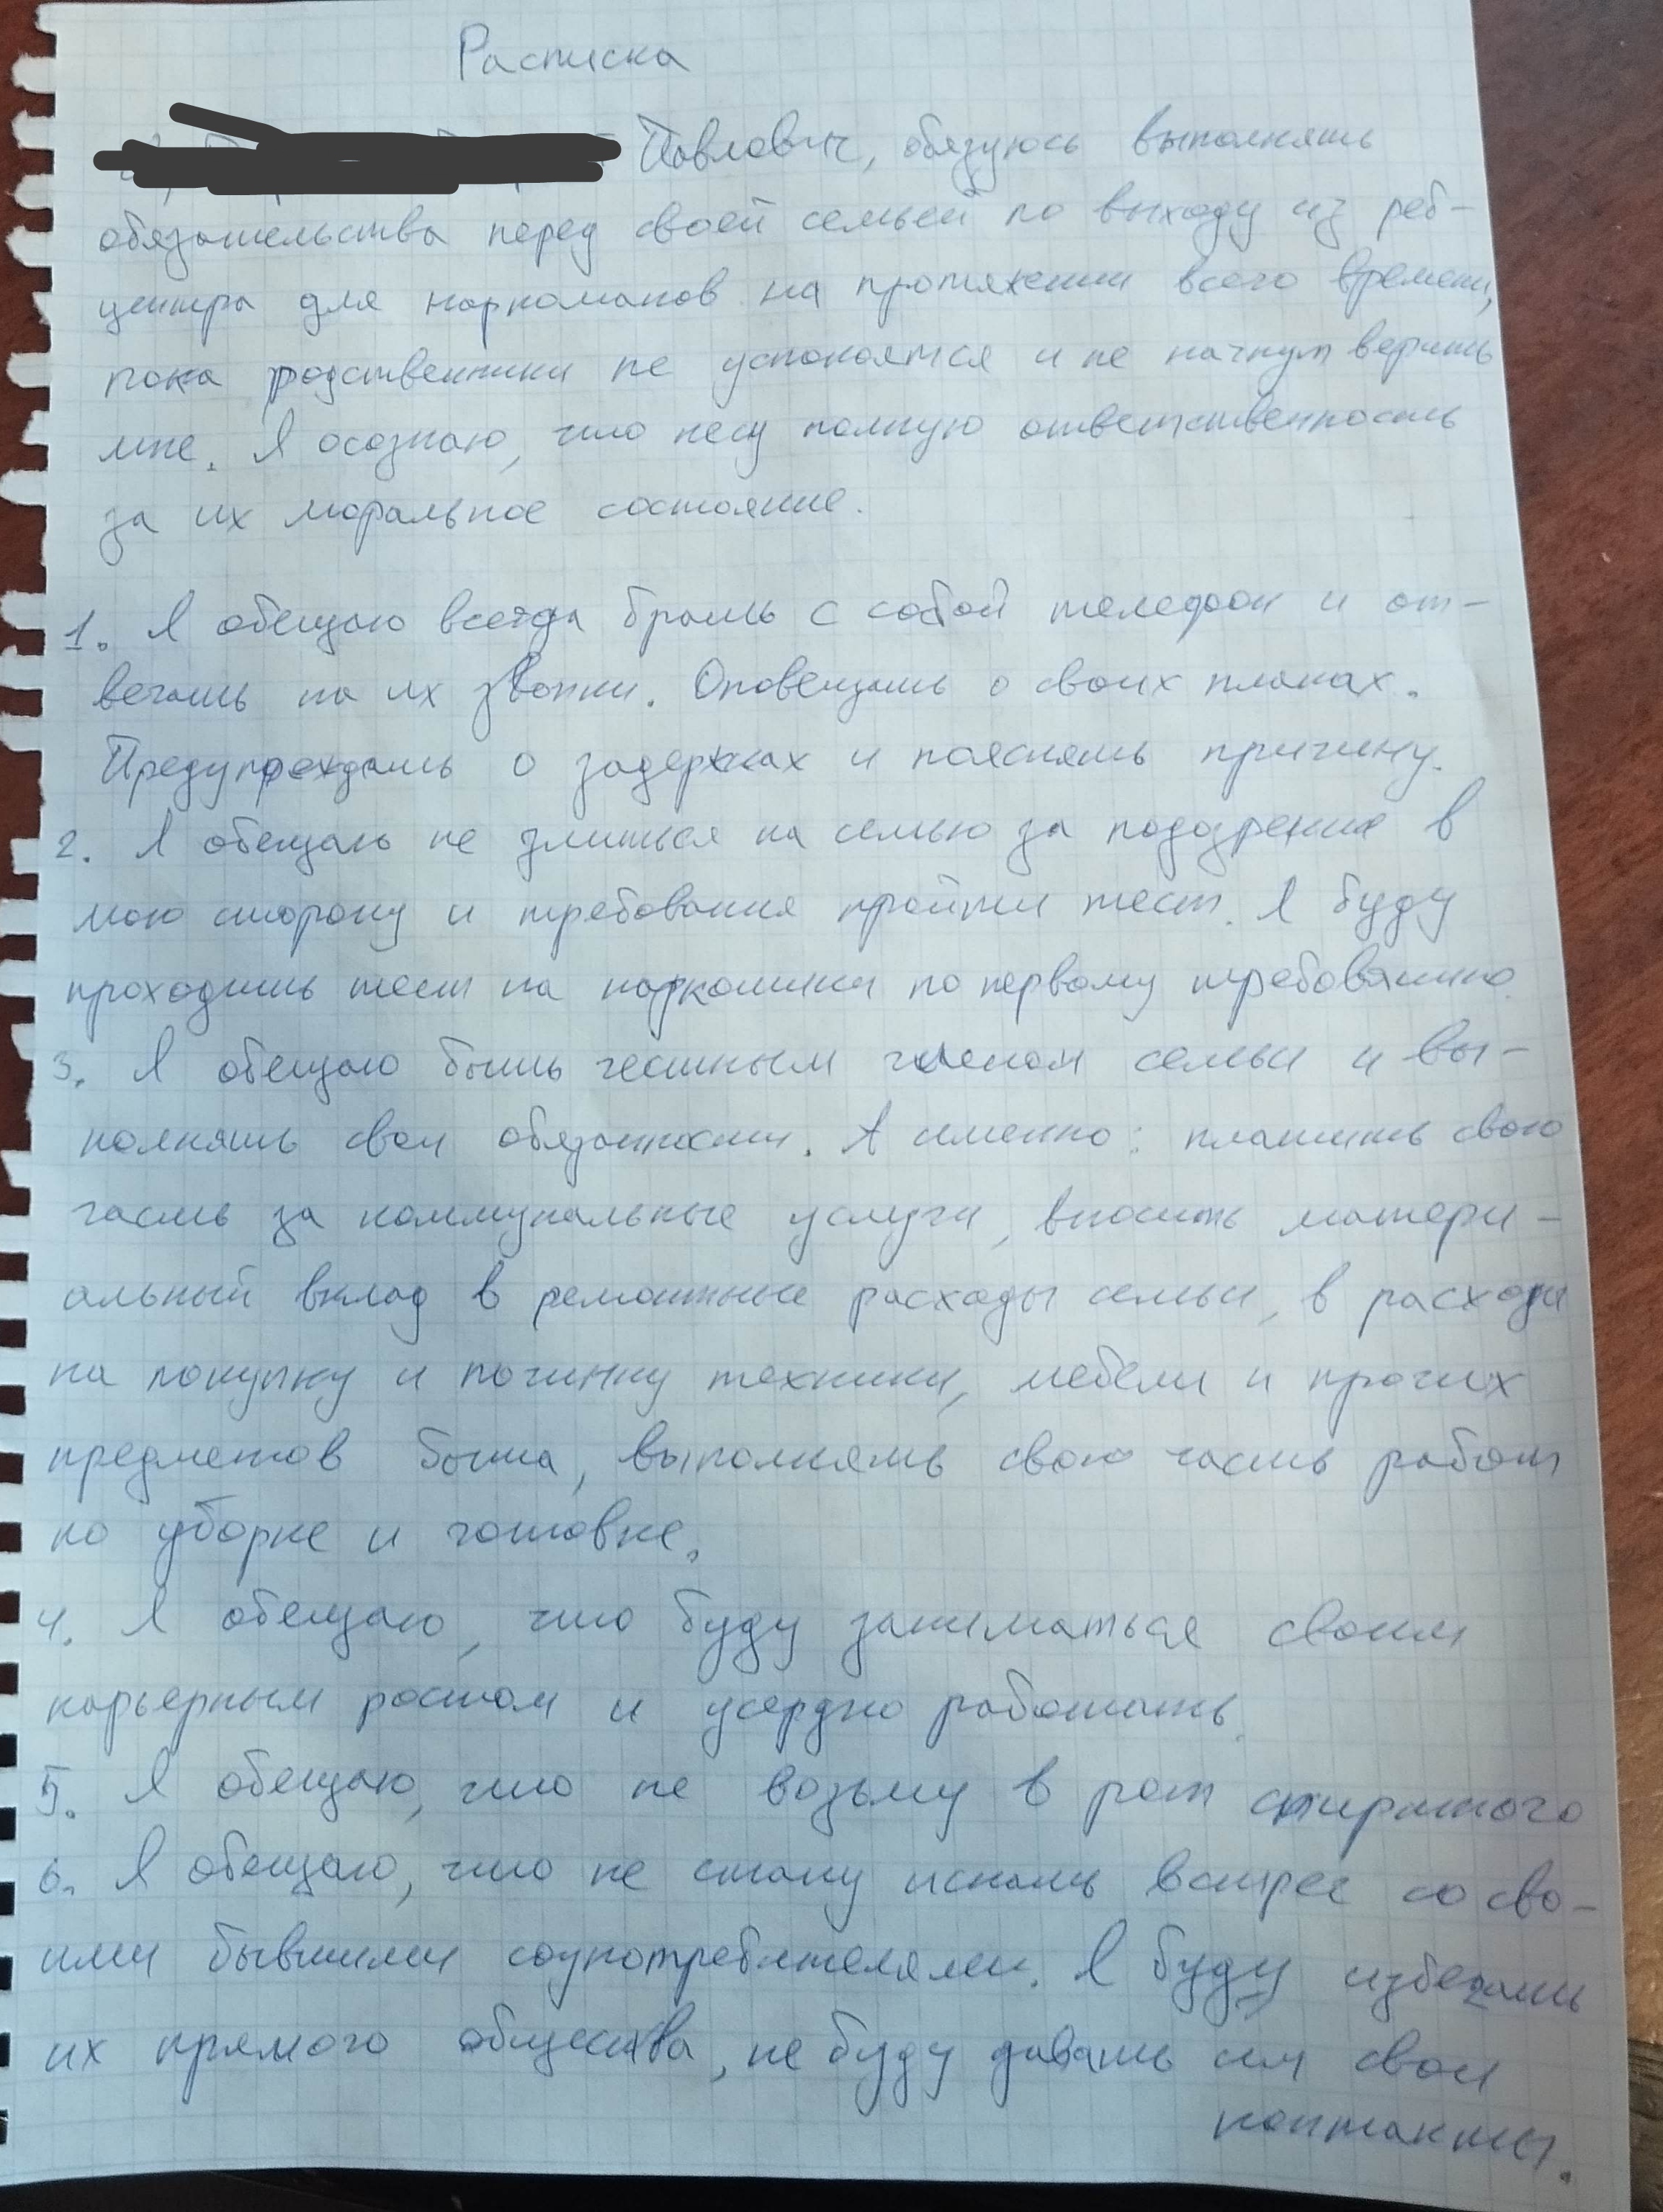 Расписка
Павлович, обязуюсь выполнять
обязательства перед своей семьей по выходу из реб-
центра для наркоманов на протяжении всего времени,
пока родственники не успокоятся и не начнут верить
мне. Я осознаю, что несу полную ответственность
за их моральное состояние.
1. Я обещаю всегда брать с собой телефон и от-
вечать на их звонки. Оповещать о своих планах.
Предупреждать о задержках и пояснять причину.
2. Я обещаю не злиться на семью за подозрения в
мою сторону и требования пройти тест. Я буду
проходить тест на наркотики по первому требованию.
3. Я обещаю быть честным членом семьи и вы-
полнять свои обязанности. А именно: платить свою
часть за коммунальные услуги, вносить матери-
альный вклад в ремонтные расходы семьи, в расходы
на покупку и починку техники, мебели и прочих
предметов быта, выполнять свою часть работ
по уборке и готовке.
4. Я обещаю, что буду заниматься своим
карьерным ростом и усердно работать.
5. Я обещаю, что не возьму в рот спиртного
6. Я обещаю, что не стану искать встреч со сво-
ими бывшими соупотребителями. Я буду избегать
их прямого общества, не буду давать им свои
контакты.